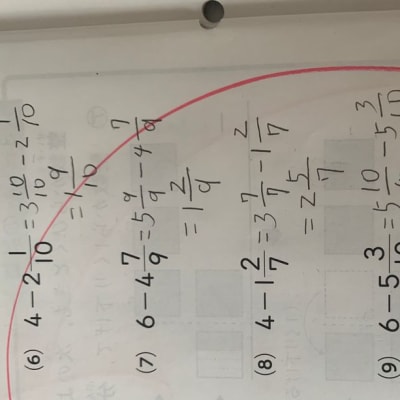 (6) 4 − 2 1/10 = 3 10/10 − 2 1/10
= 1 9/10
(7) 6 − 4 7/9 = 5 9/9 − 4 7/9
= 1 2/9
(8) 4 − 1 2/7 = 3 7/7 − 1 2/7
= 2 5/7
(9) 6 − 5 3/10 = 5 10/10 − 5 3/10